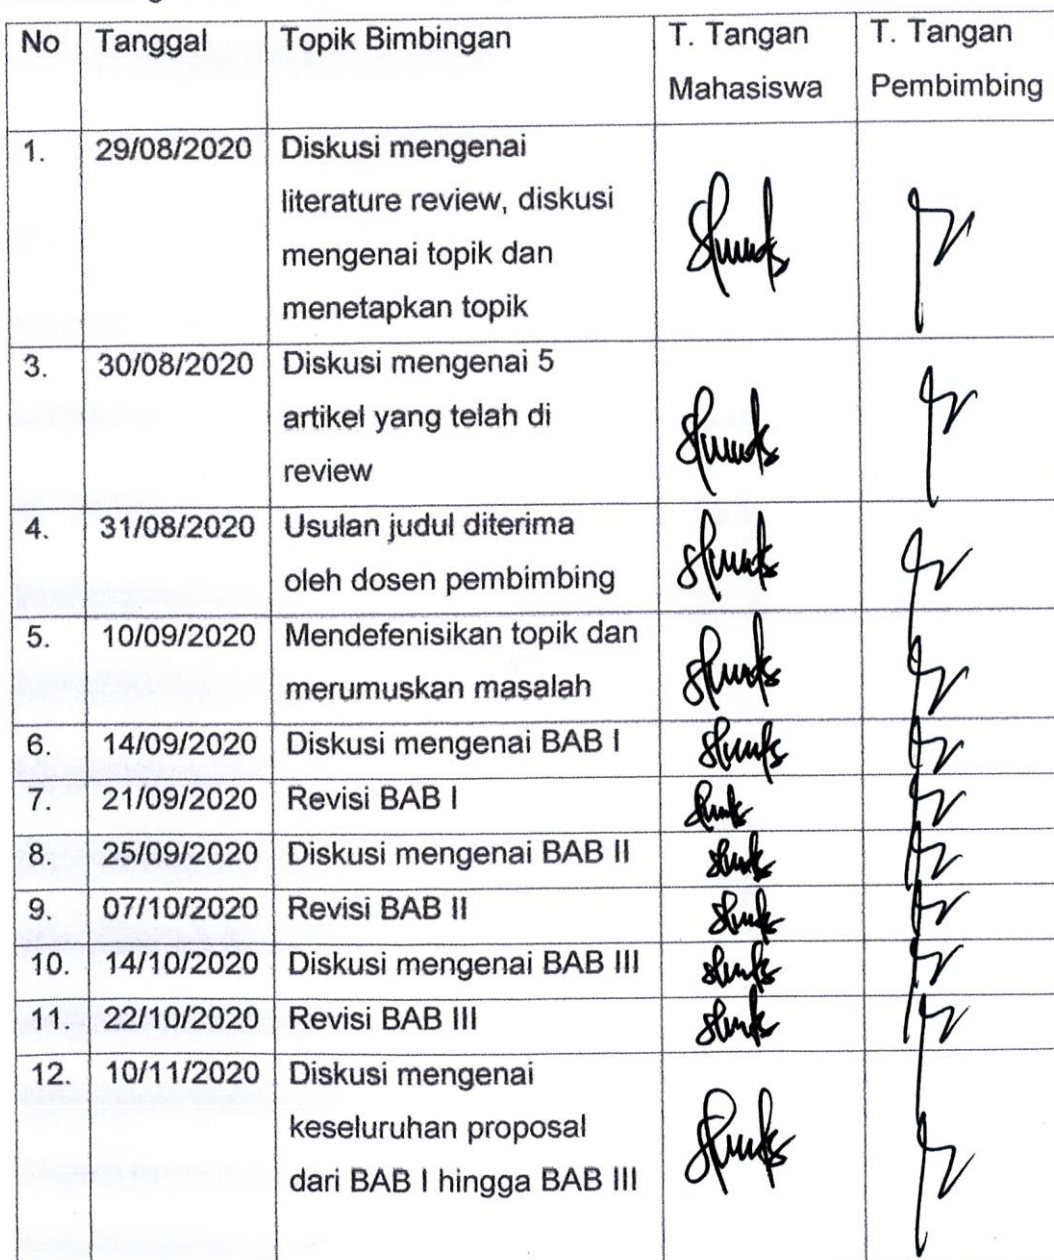 No Tanggal Topik Bimbingan T. Tangan Mahasiswa T. Tangan Pembimbing
1. 29/08/2020 Diskusi mengenai
literature review, diskusi
mengenai topik dan
menetapkan topik
3. 30/08/2020 Diskusi mengenai 5
artikel yang telah di
review
4. 31/08/2020 Usulan judul diterima
oleh dosen pembimbing
5. 10/09/2020 Mendefenisikan topik dan
merumuskan masalah
6. 14/09/2020 Diskusi mengenai BAB I
7. 21/09/2020 Revisi BAB I
8. 25/09/2020 Diskusi mengenai BAB II
9. 07/10/2020 Revisi BAB II
10. 14/10/2020 Diskusi mengenai BAB III
11. 22/10/2020 Revisi BAB III
12. 10/11/2020 Diskusi mengenai
keseluruhan proposal
dari BAB I hingga BAB III